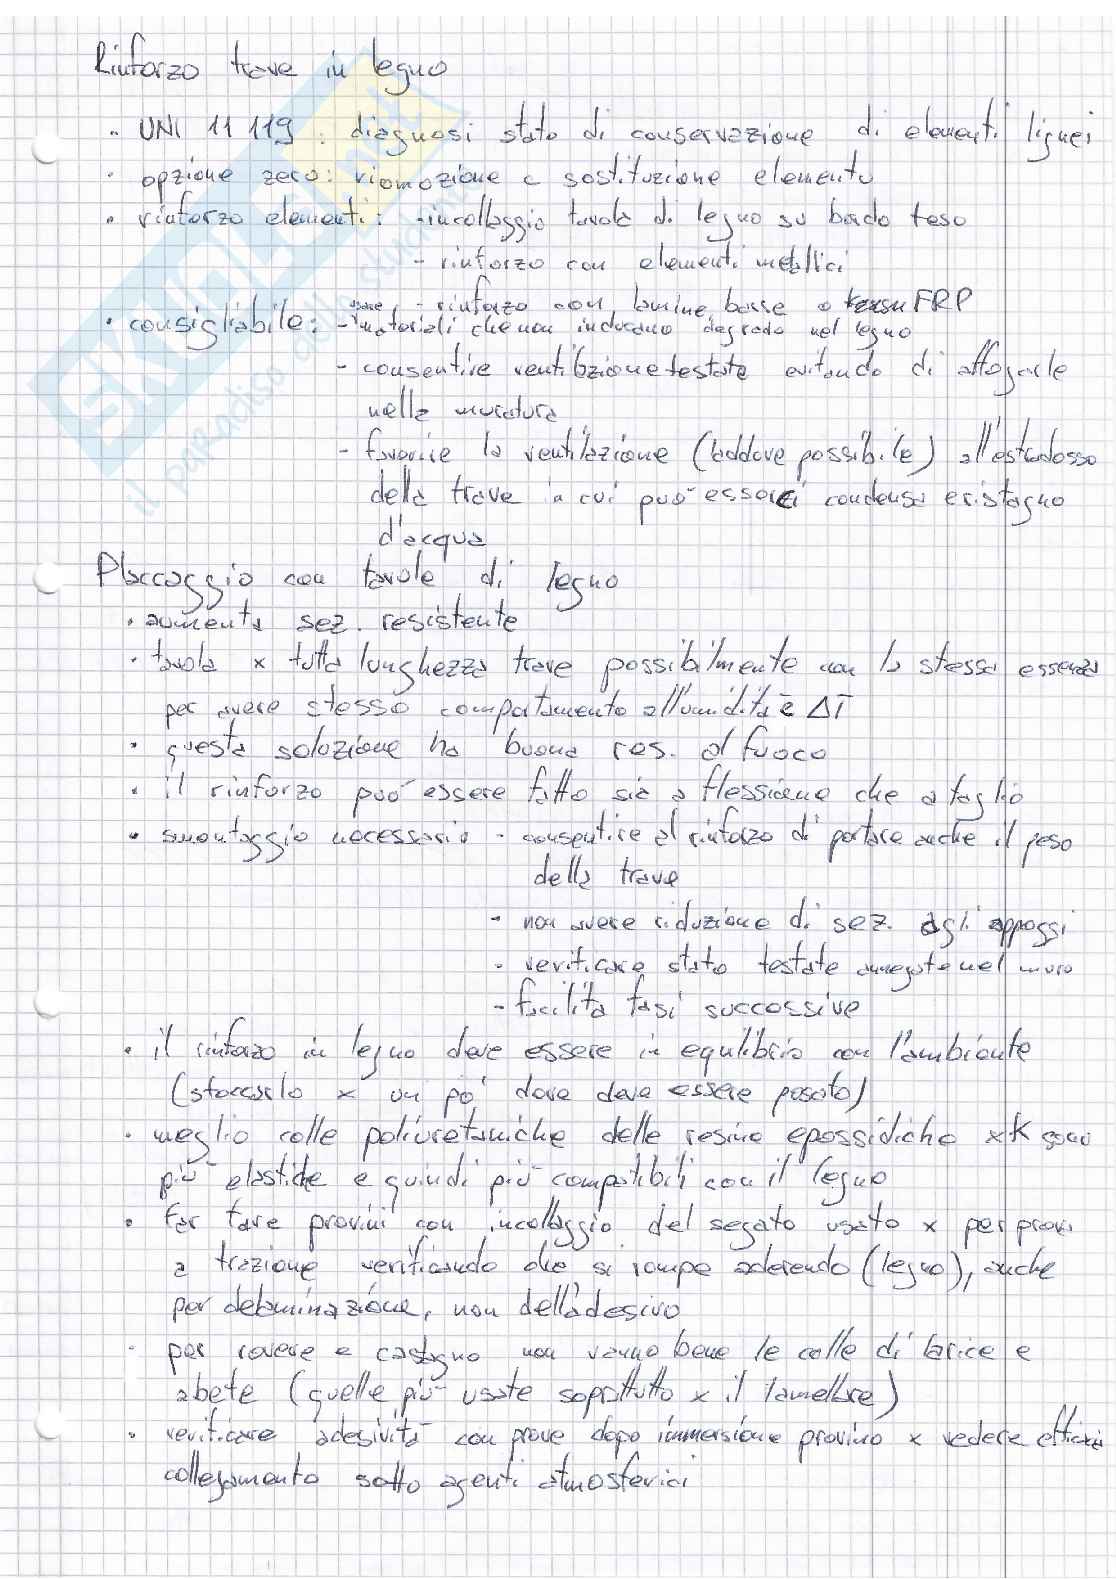 Rinforzo trave in legno
• UNI 11 119: diagnosi stato di conservazione di elementi lignei
• opzione zero: rimozione e sostituzione elemento
• rinforzo elementi: - incollaggio tavola di legno su bordo teso
- rinforzo con elementi metallici
- rinforzo con lamine, barre o FRP
• consigliabile: - usare materiali che non inducano degrado nel legno
- consentire ventilazione testate evitando di affogarle
nella muratura
- favorire la ventilazione (laddove possibile) all'estradosso
della trave in cui può esserci condensa e ristagno
d'acqua
Placcaggio con tavole di legno
• aumenta sez. resistente
• tavola x tutta lunghezza trave possibilmente con la stessa essenza
per avere stesso comportamento all'umidità e ΔT
• questa soluzione ha buona res. al fuoco
• il rinforzo può essere fatto sia a flessione che a taglio
• smontaggio necessario - consentire al rinforzo di portare anche il peso
della trave
- non avere riduzione di sez. agli appoggi
- verificare stato testate annegate nel muro
- facilita fasi successive
• il rinforzo in legno deve essere in equilibrio con l'ambiente
(stoccarlo x un po' dove deve essere posato)
• meglio colle poliuretaniche delle resine epossidiche xK sono
più elastiche e quindi più compatibili con il legno
• far fare provini con incollaggio del segato usato x per prova
a trazione verificando che si rompe aderendo (legno), anche
per delaminazione, non dell'adesivo
• per rovere e castagno non vanno bene le colle di larice e
abete (quelle più usate soprattutto x il lamellare)
• verificare adesività con prove dopo immersione provino x vedere efficacia
collegamento sotto agenti atmosferici
SKUOLA.net
il paradiso dello studente